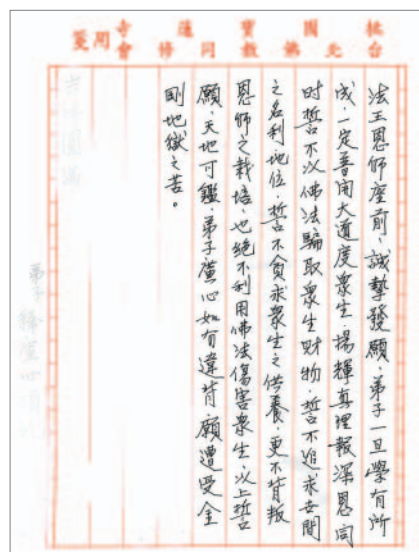 桃園寶蓮寺
台北佛教同修會
用箋
法王恩師座前、誠摯發願、弟子一旦學有所
成、一定普開大道度衆生、揚輝真理報深恩、同
时誓不以佛法騙取衆生財物、誓不追求世間
之名利地位、誓不貪求衆生之供養、更不背叛
恩師之栽培、也絕不利用佛法傷害衆生、以上誓
願、天地可鑑、弟子心如有違背願遭受金
剛地獄之苦。
圓滿
弟子
釋心頂礼